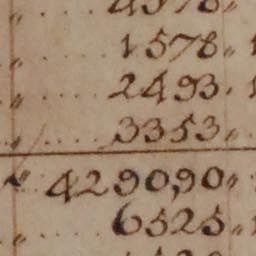 1578.
2493.
3353.
429090.
6525.